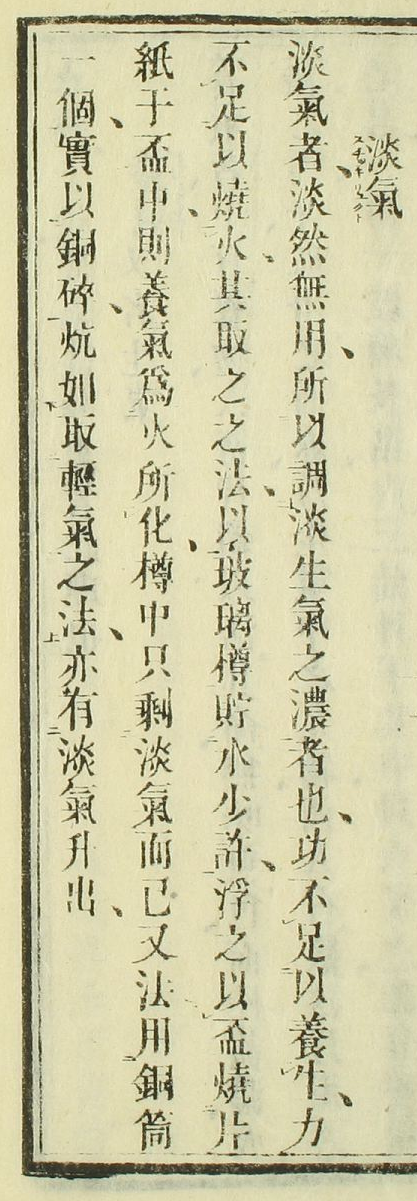 淡氣
淡氣者、淡然無用、所以調淡生氣之濃者也、功不足以養生、力
不足以燒火、其取之之法、以玻璃樽貯水少許、浮之以盃、燒片
紙于盃中、則養氣爲火所化、樽中只剩淡氣而已又法用銅筒
一個、實以銅碎、炕如取輕氣之法、亦有淡氣升出、